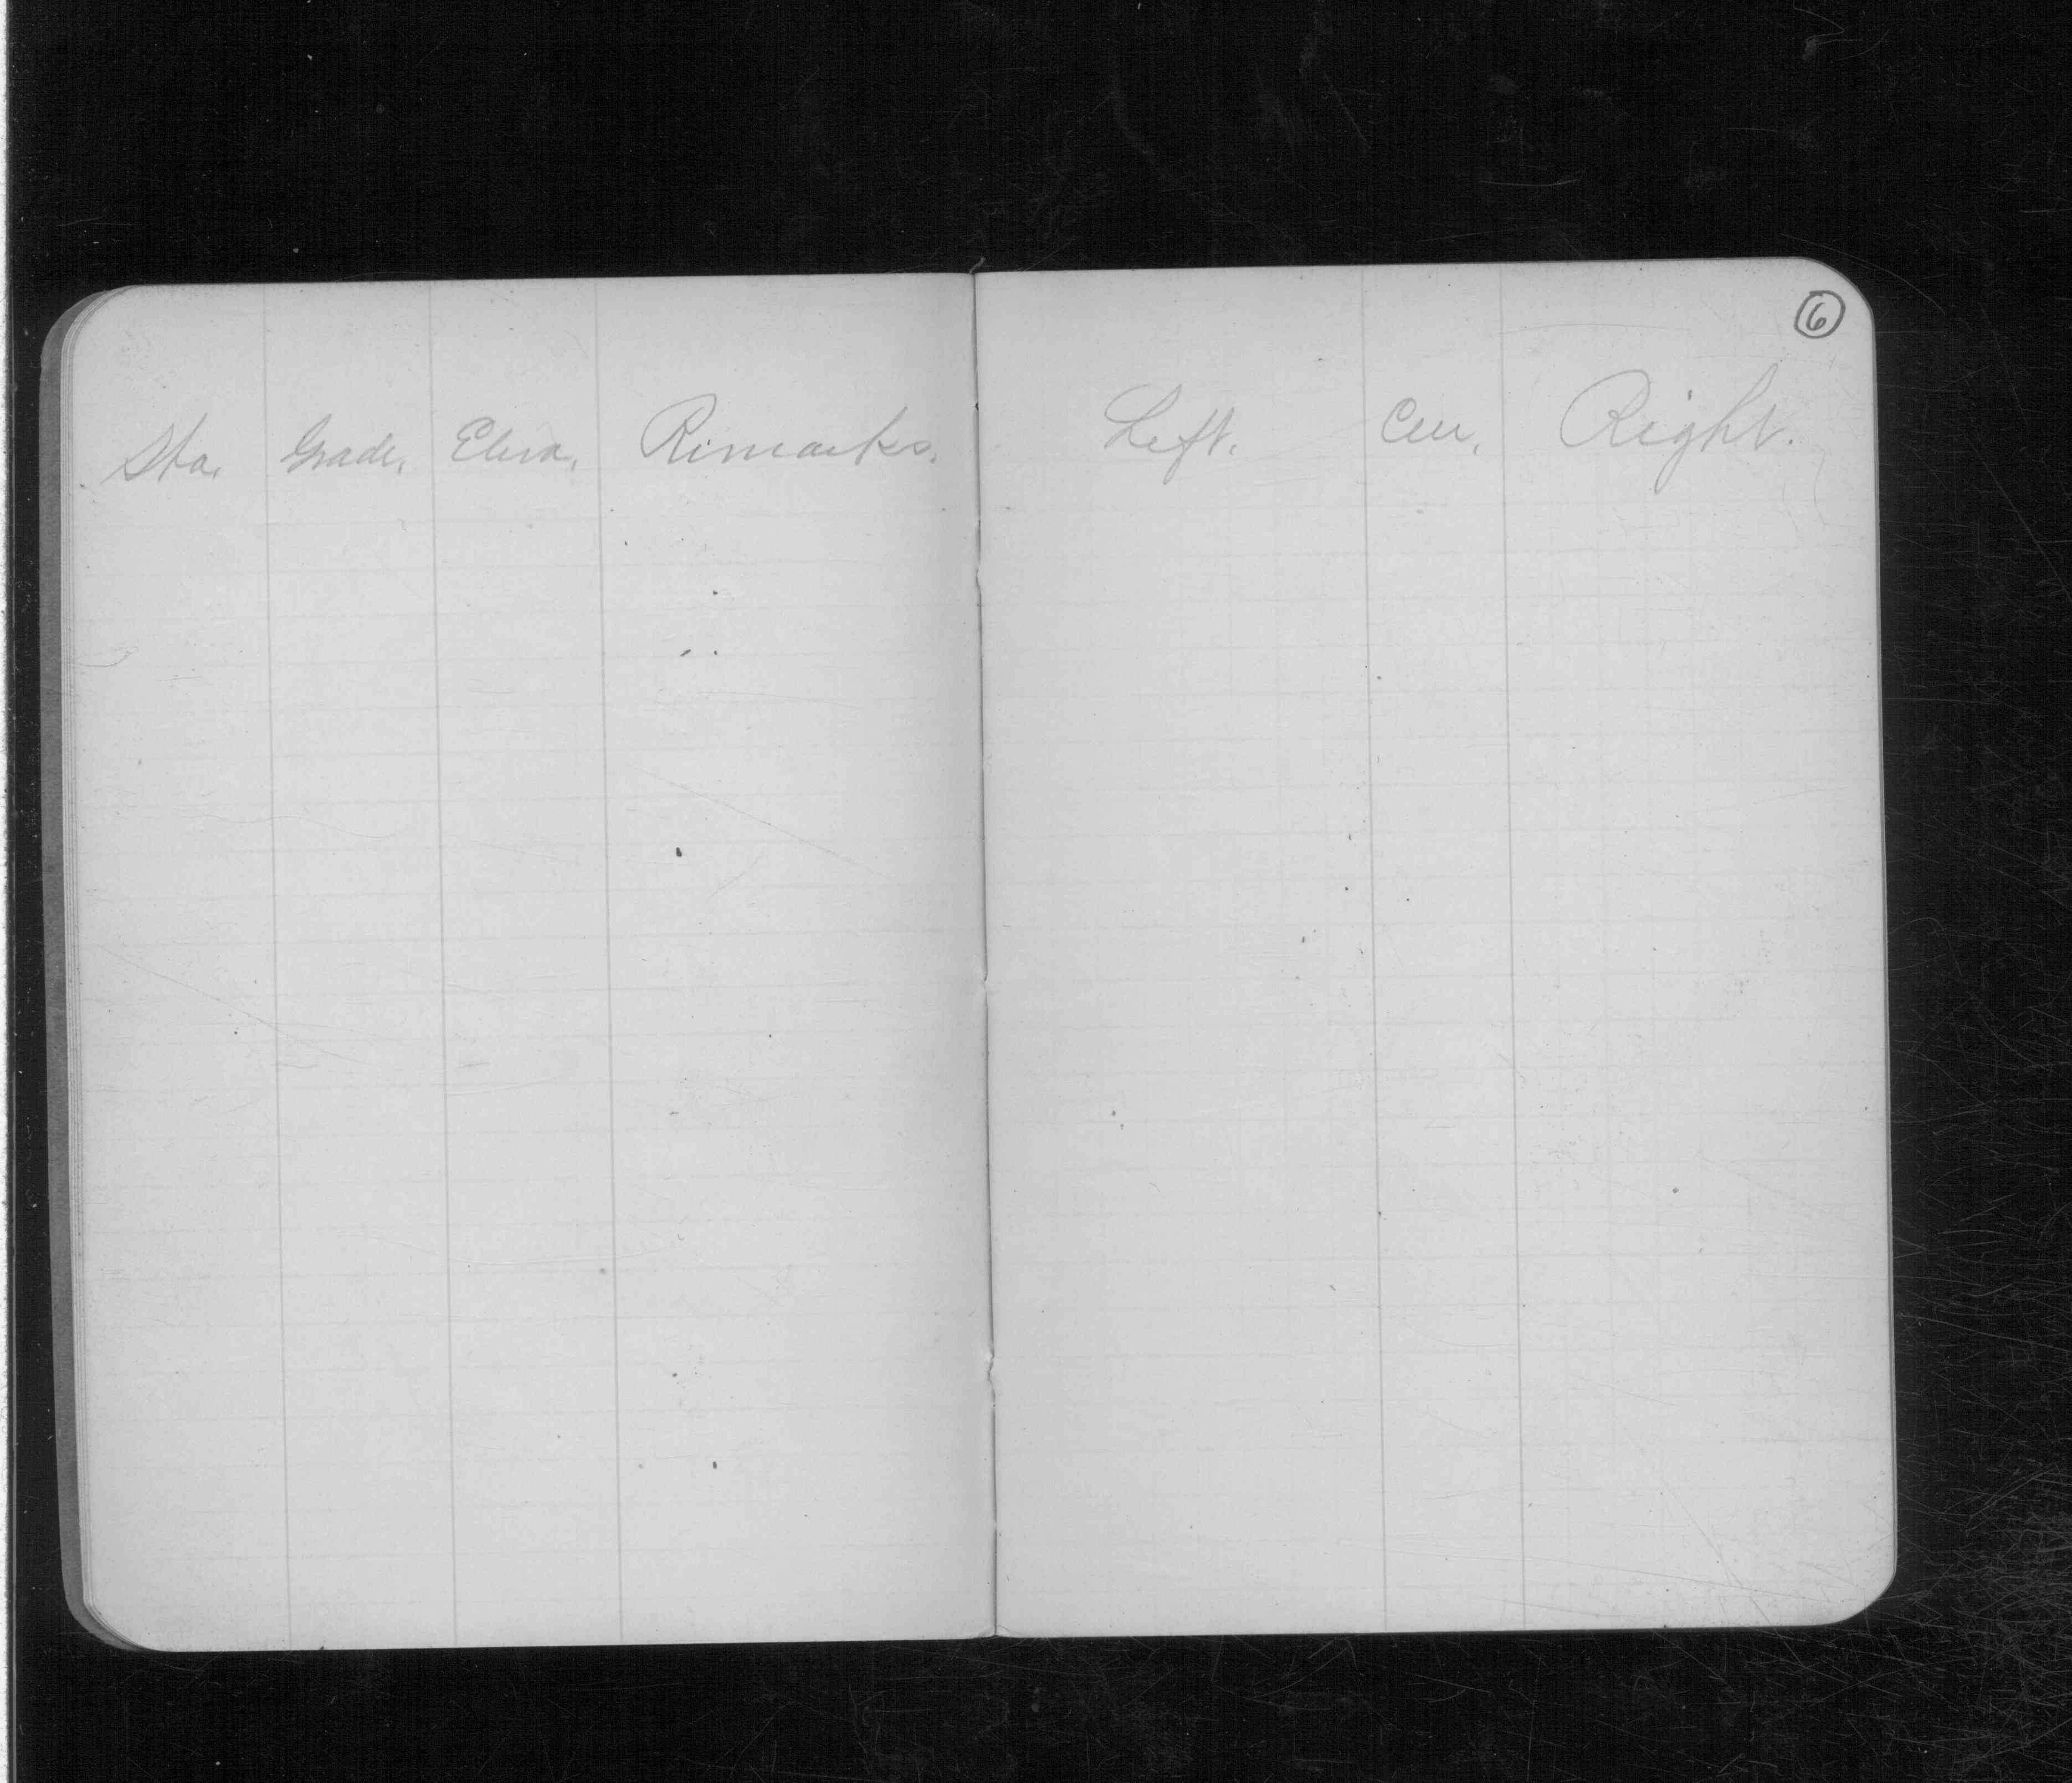 6
Sta. Grade. Eleva. Remarks.
Left. Cen. Right.